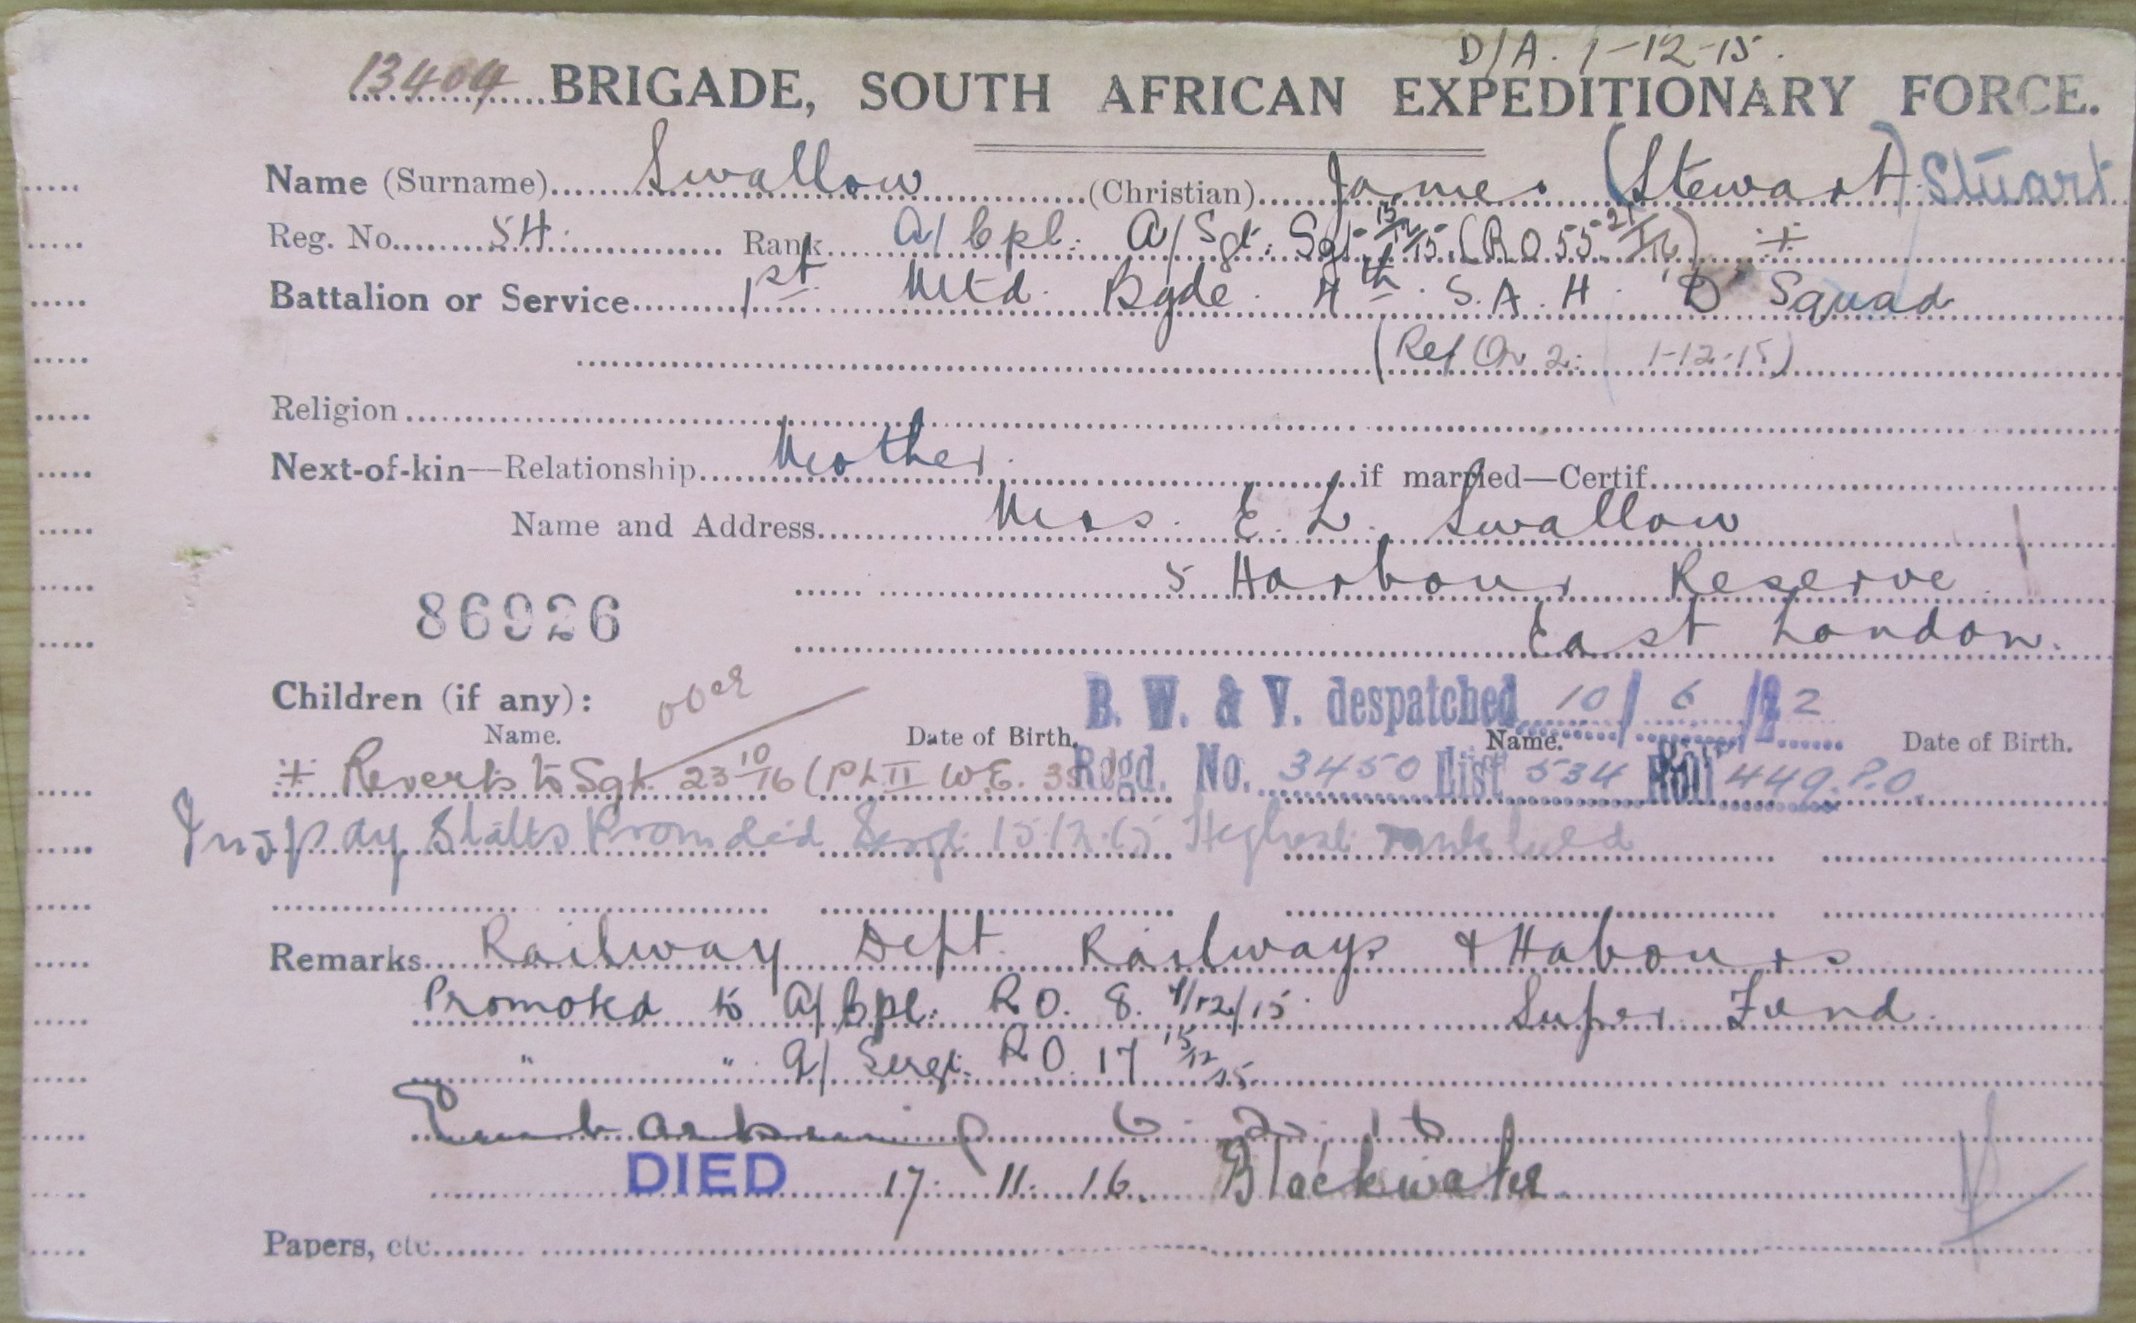 D/A. 1-12-15.
13404 BRIGADE, SOUTH AFRICAN EXPEDITIONARY FORCE.
Name (Surname) Swallow (Christian) James (Stewart) Stuart
Reg. No. 54. Rank A/Cpl. A/Sgt. Sgt. 15/12/15 (R.O 55 21/1/16) *
Battalion or Service 1st Mtd. Bgde. 4th S.A.H. "D" Squad
(Ref Or 2: 1-12-15)
Religion
Next-of-kin—Relationship Mother. if married—Certif.
Name and Address Mrs. E. L. Swallow
5 Harbour Reserve
86926 East London.
Children (if any): B. W. & V. despatched 10/6/22
Name. Date of Birth. Name. Date of Birth.
* Reverts to Sgt. 23/10/16 (Pt II W.E. 3 Rdgd. No. 3450 List 534 Roll 449. P.O.
pay States Promoted Sergt 15.12.15 Highest rank held
Remarks Railway Dept. Railways & Habours
Promoted to A/Cpl. R.O. 8. 7/12/15 Super. Fund.
" " A/Sergt. R.O. 17 15/12/15.
Embarkn
DIED 17. 11. 16. Blackwater
Papers, etc.